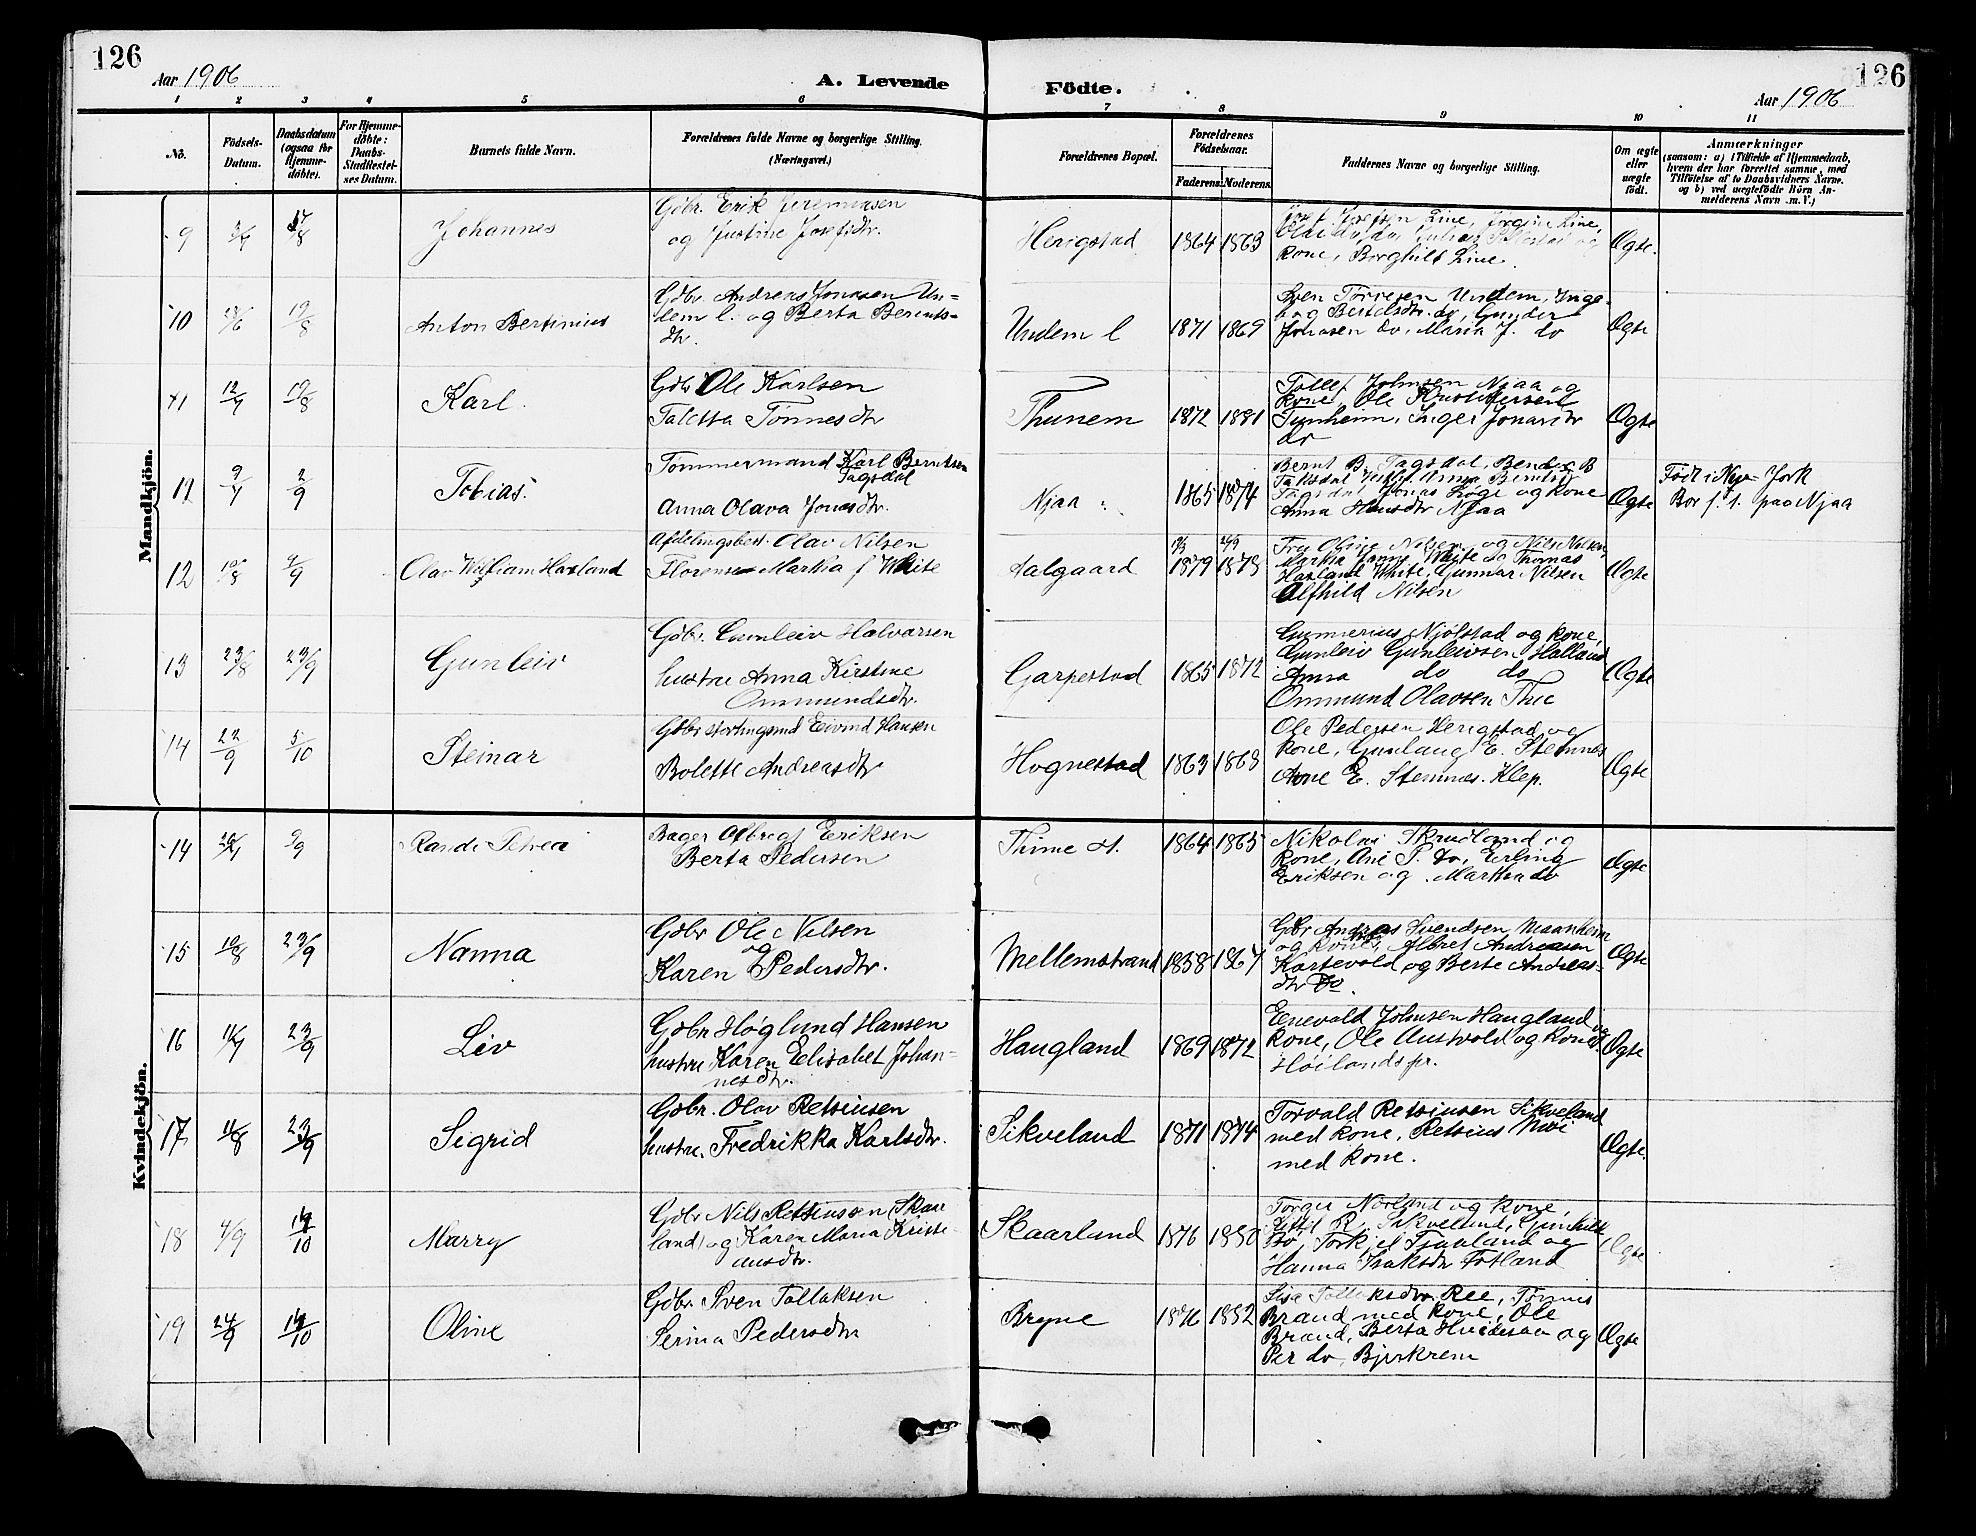 126
Aar 1906
A. Levende
Födte.
126
Aar 1906
1 2 3 4 5 6 7 8 9 10 11
No.
Födsels-
Datum.
Daabsdatum
(ogsaa for
Hjemme-
döbte).
For Hjemme-
döbte:
Daabs-
Stadfæstel-
ses Datum.
Barnets fulde Navn.
Forældrenes fulde Navne og borgerlige Stilling.
(Næringsvei.)
Forældrenes Bopæl.
Forældrenes
Födselsaar.
Faderens. Moderens.
Faddernes Navne og borgerlige Stilling.
Om ægte
eller
uægte
födt.
Anmærkninger
(saasom: a) i Tilfælde af Hjemmedaab,
hvem der har forrettet samme, med
Tilföielse af to Daabsvidners Navne,
og b) ved uægtefödte Börn An-
melderens Navn .m. V.)
Mandkjön.
9 Johannes
Gdbr. Erik Jeremiasen
og Justine Josefsdtr.
Herigstad 1864 1863
Line, Line,
kone, Borghild Line.
Ægte.
10 19/8 Anton Bertinius
Gdbr. Andreas Jonasen Un=
dem l. og Berta Berents=
dtr.
Undem l 1871 1869
Sven Torresen Undem, Inge-
borg Bertelsdtr. do, Gunder
Jonasen do, Maria J. do
Ægte
11 12/7 19/8 Karl
Gdbr Ole Karlsen
Taletta Tönnesdtr
Thunem 1872 1881
Tollef Johnsen Njaa og
kone, Ole Kristofersen
Tunheim, Inger Jonasdtr
do
Ægte
11 9/7 2/9 Tobias
Tømmermand Karl Berntsen
Tagsdal
Anna Olava Jonasdtr.
Njaa 1865 1874
Bernt B. Tagsdal, Bendig B
Taksdal, Anna Berntsdtr
Tagsdal Jonas Høge og kone
Anna Hansdtr Njaa
Ægte
Født i New-York
Bor f. t. paa Njaa
12 10/8 9/9 Olav William Harland
Afdelingsbest. Olav Nilsen
Florense Martha f White
Aalgaard 1879 1878
Fru Oline Nilsen og Nils Nilsen
Martha Jenny White Thomas
Harland White, Gunnar Nilsen
Alfhild Nilsen
Ægte
13 23/8 23/9 Gunleiv
Gdbr. Gunleiv Halvarsen
hustru Anna Kirstine
Ommundsdtr.
Garpestad 1865 1872
Gumerius Njølstad og kone,
Gunleiv Gunleivsen Holland
Anna do do
Ommund Olavsen Thu
Ægte
14 22/9 5/10 Steinar
Gdbr stortingsmd Eivind Hansen
Bolette Andreasdtr
Hognestad 1863 1868
Ole Pedersen Herigstad og
kone, Gunlaug E. Stemnes
Arne E. Stemnes. Klep.
Ægte
Kvindekjön.
14 9/9 Randi Petrea
Bager Albregt Eriksen
Berta Pedersen
Thime st. 1864 1865
Nikolai Skrudland og
kone, Ane P. do, Erling
Eriksen og Martha do
Ægte
15 19/8 23/9 Nanna
Gdbr Ole Nilsen
og
Karen Pedersdtr.
Mellemstrand 1858 1867
Gbr Andreas Svendsen Maanheim
og kone, Albret Andreasen
Kartevold og Berte Andreas-
dtr do.
Ægte
16 11/7 23/9 Liv
Gdbr Høglund Hansen
hustru Karen Elisabet Johan=
nesdtr.
Haugland 1869 1872
Enevald Johnsen Haugland og
kone, Ole Austvold og kone
Høilandspr.
Ægte
17 11/8 23/9 Sigrid
Gdbr. Olav Retsiusen
hustru. Fredrikka Karlsdtr.
Sikveland 1871 1874
Torvald Retsiusen Sikveland
med kone, Retsius Moi
med kone.
Ægte.
18 4/9 14/10 Marry
Gdbr Nils Retsiussen (Skaar
land) og Karen Maria Kristi
ansdtr.
Skaarland 1876 1880
Torger Norland og kone,
R. Sikveland, Gunhild
Bø, Torkjel Tjaaland og
Hanna Isaksdtr Fotland
Ægte
19 24/9 14/10 Oline
Gdbr. Sven Tollaksen
Serina Pedersdtr
Bryne 1876 1882
Lisa Tollaksdtr. Ree, Tønnes
Braud med kone, Ole
Braud, Berta og
Per do, Bjerkrem
Ægte